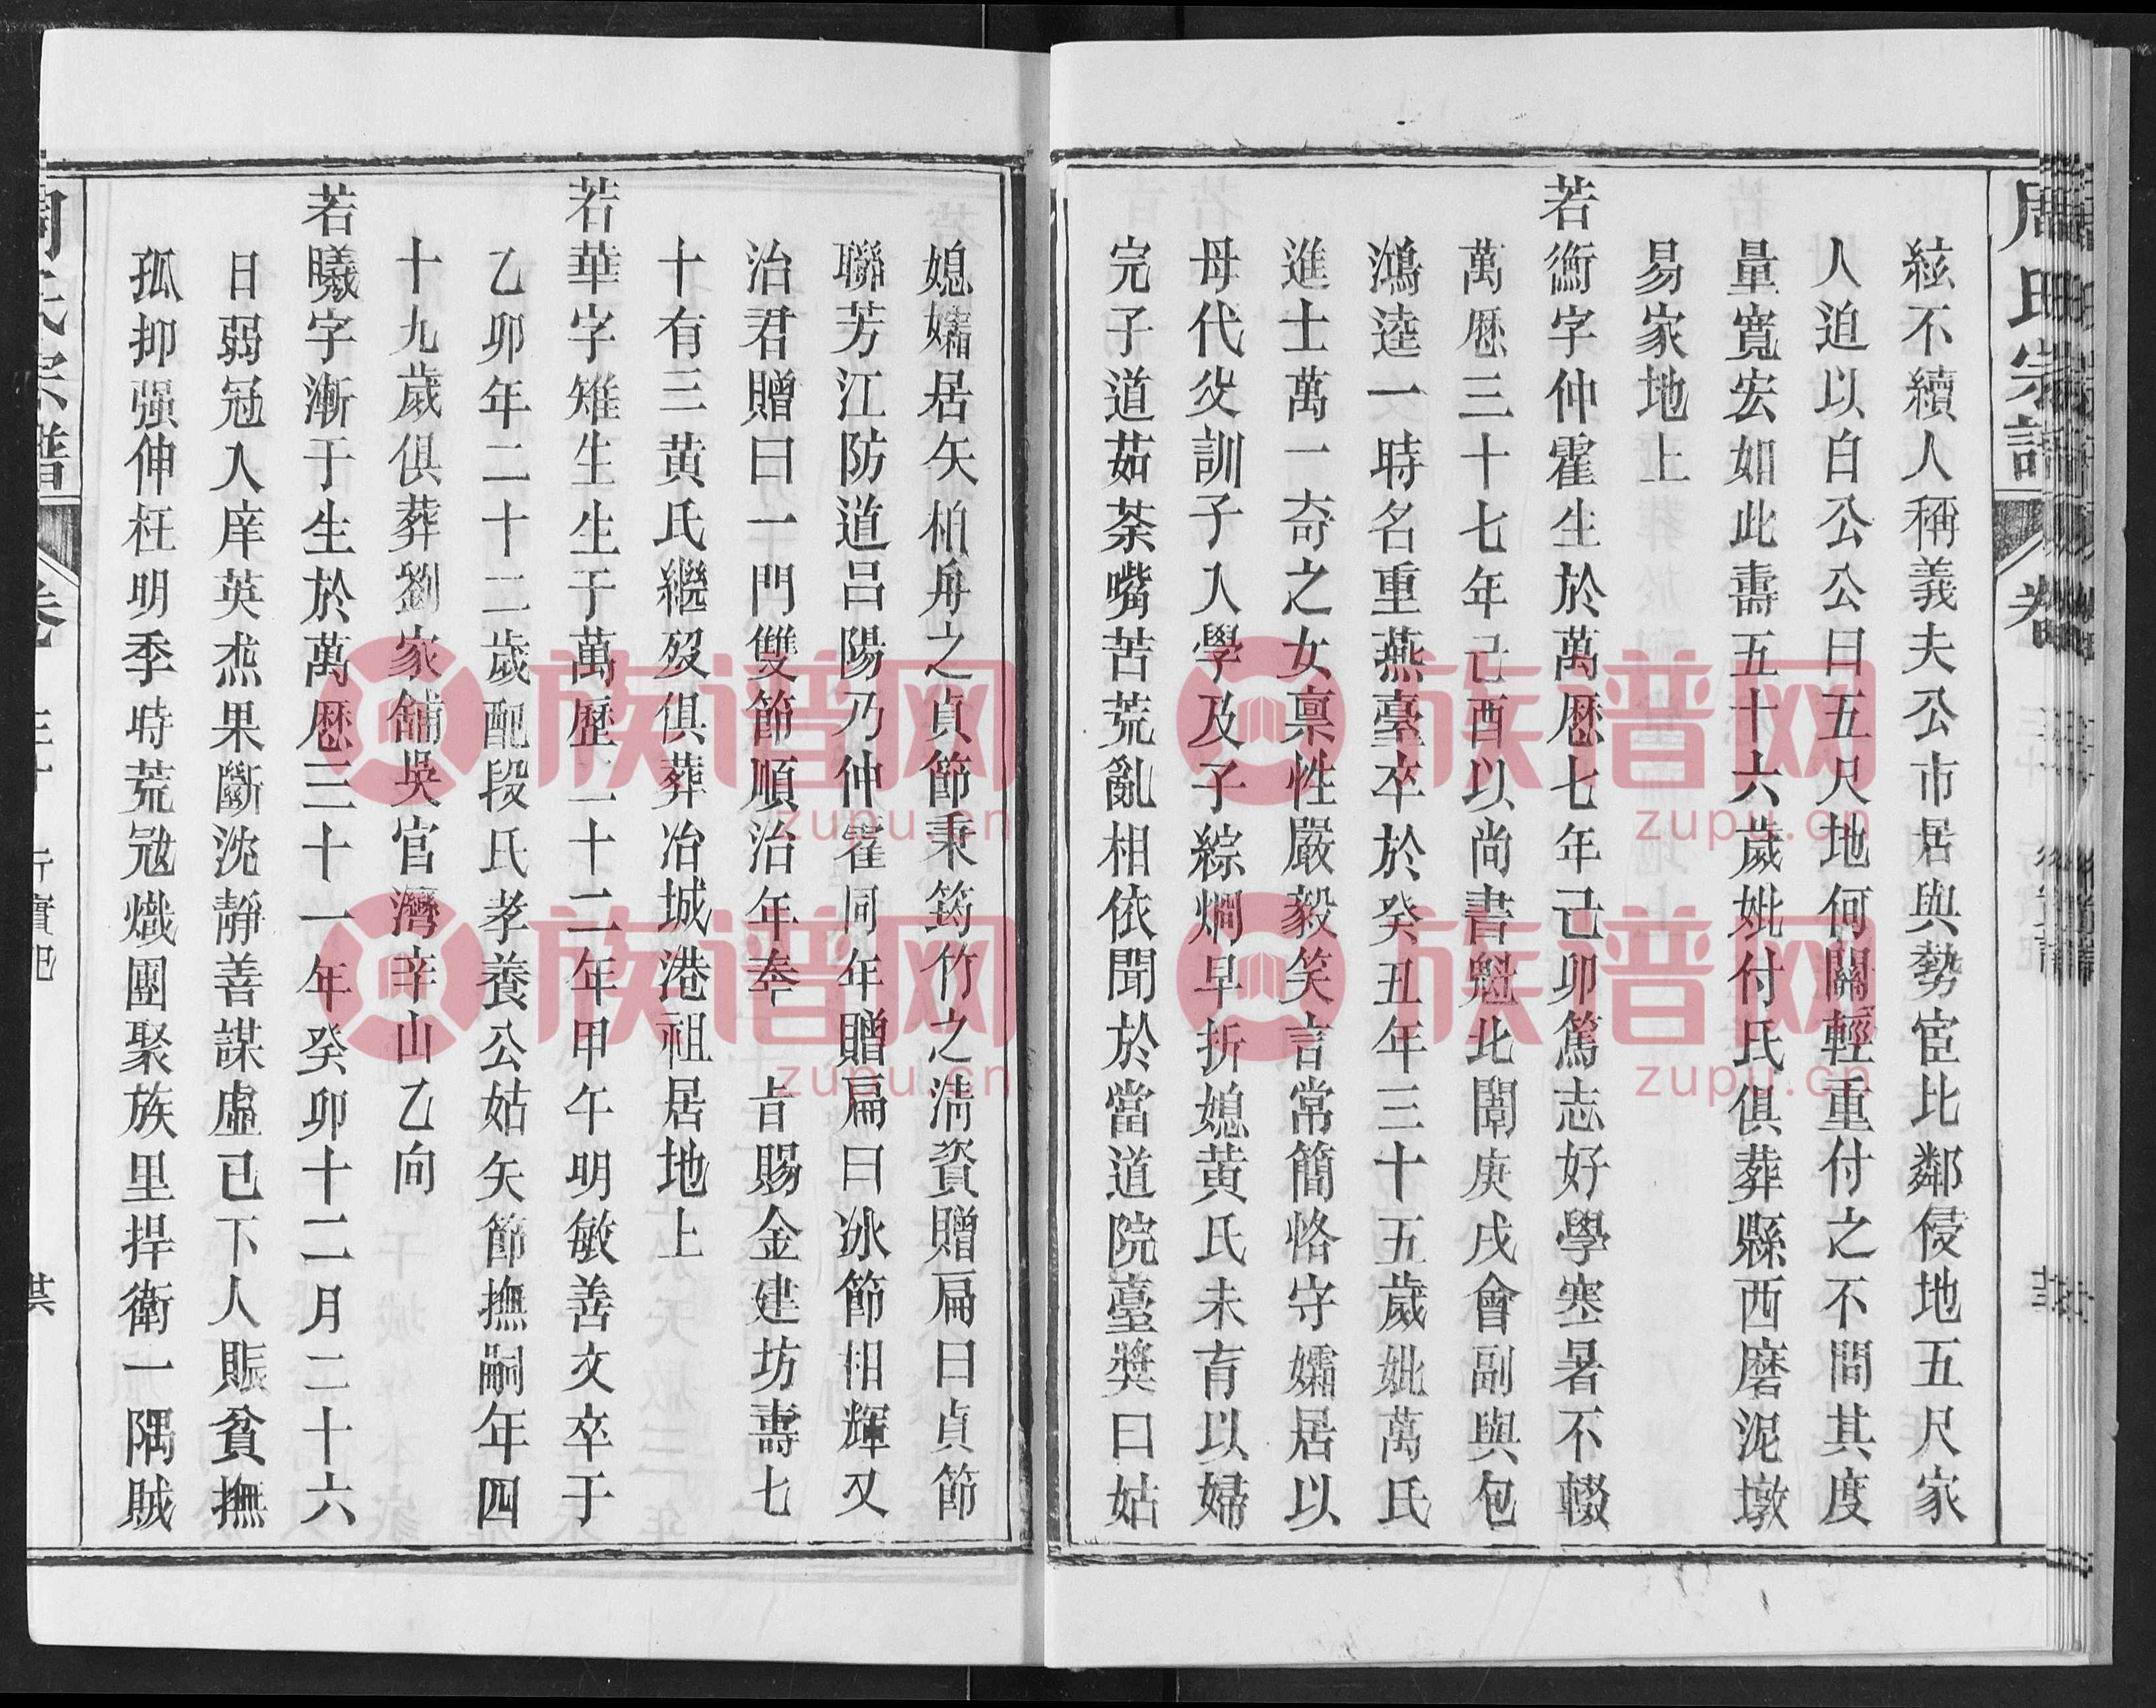 絃不續人稱義夫公市居與勢宦比鄰侵地五尺家
人迫以白公公曰五尺地何關輕重付之不問其度
量寬宏如此壽五十六歲妣付氏俱葬縣西磨泥墩
易家地上
若衡字仲霍生於萬厯七年己卯篤志好學寒暑不輟
萬厯三十七年己酉以尚書魁北闈庚戌會副與包
鴻逵一時名重燕臺卒於癸丑年三十五歲妣萬氏
進士萬一奇之女稟性嚴毅笑言常簡恪守孀居以
母代父訓子入學及子綜烱早折媳黄氏未育以婦
完子道茹荼嘴苦荒亂相依聞於當道院臺奬曰姑
媳孀居矢柏舟之貞節秉筠竹之清資贈扁曰貞節
聯芳江防道呂陽乃仲霍同年贈扁曰冰節相輝又
治君贈曰一門雙節順治年奉 旨賜金建坊壽七
十有三黄氏繼歿俱葬冶城港祖居地上
若華字雉生生于萬歷二十二年甲午明敏善文卒于
乙卯年二十二歲配段氏孝養公姑矢節撫嗣年四
十九歲俱葬劉家舖吳官灣辛山乙向
若曦字漸于生於萬厯三十一年癸卯十二月二十六
日弱冠入庠英烝果斷沈靜善謀虛已下人賑貧撫
孤抑强伸枉明季時荒冦熾團聚族里捍衛一隅賊
周氏宗譜
族谱网
zupu.cn
族谱网
zupu.cn
族谱网
zupu.cn
族谱网
zupu.cn